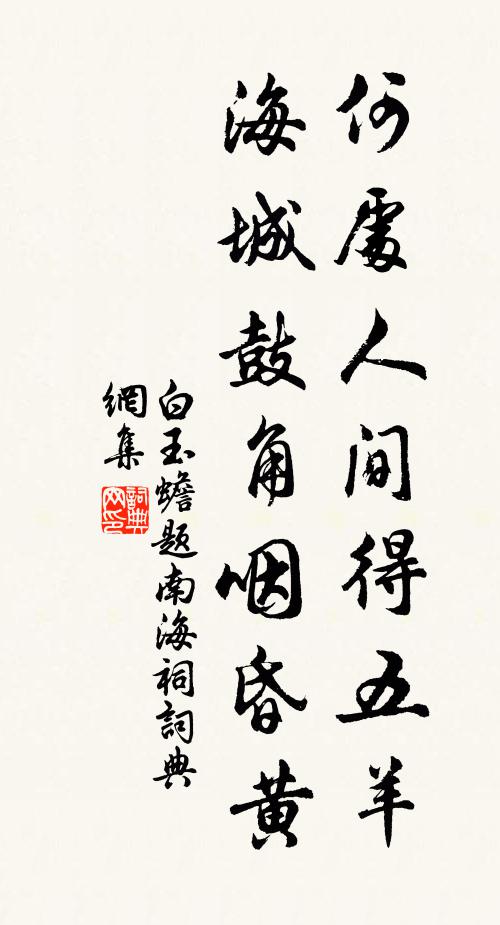 何處人間得五羊
海城鼓角咽昏黄
白玉蟾题南海祠詞典
網集
詞典
网印